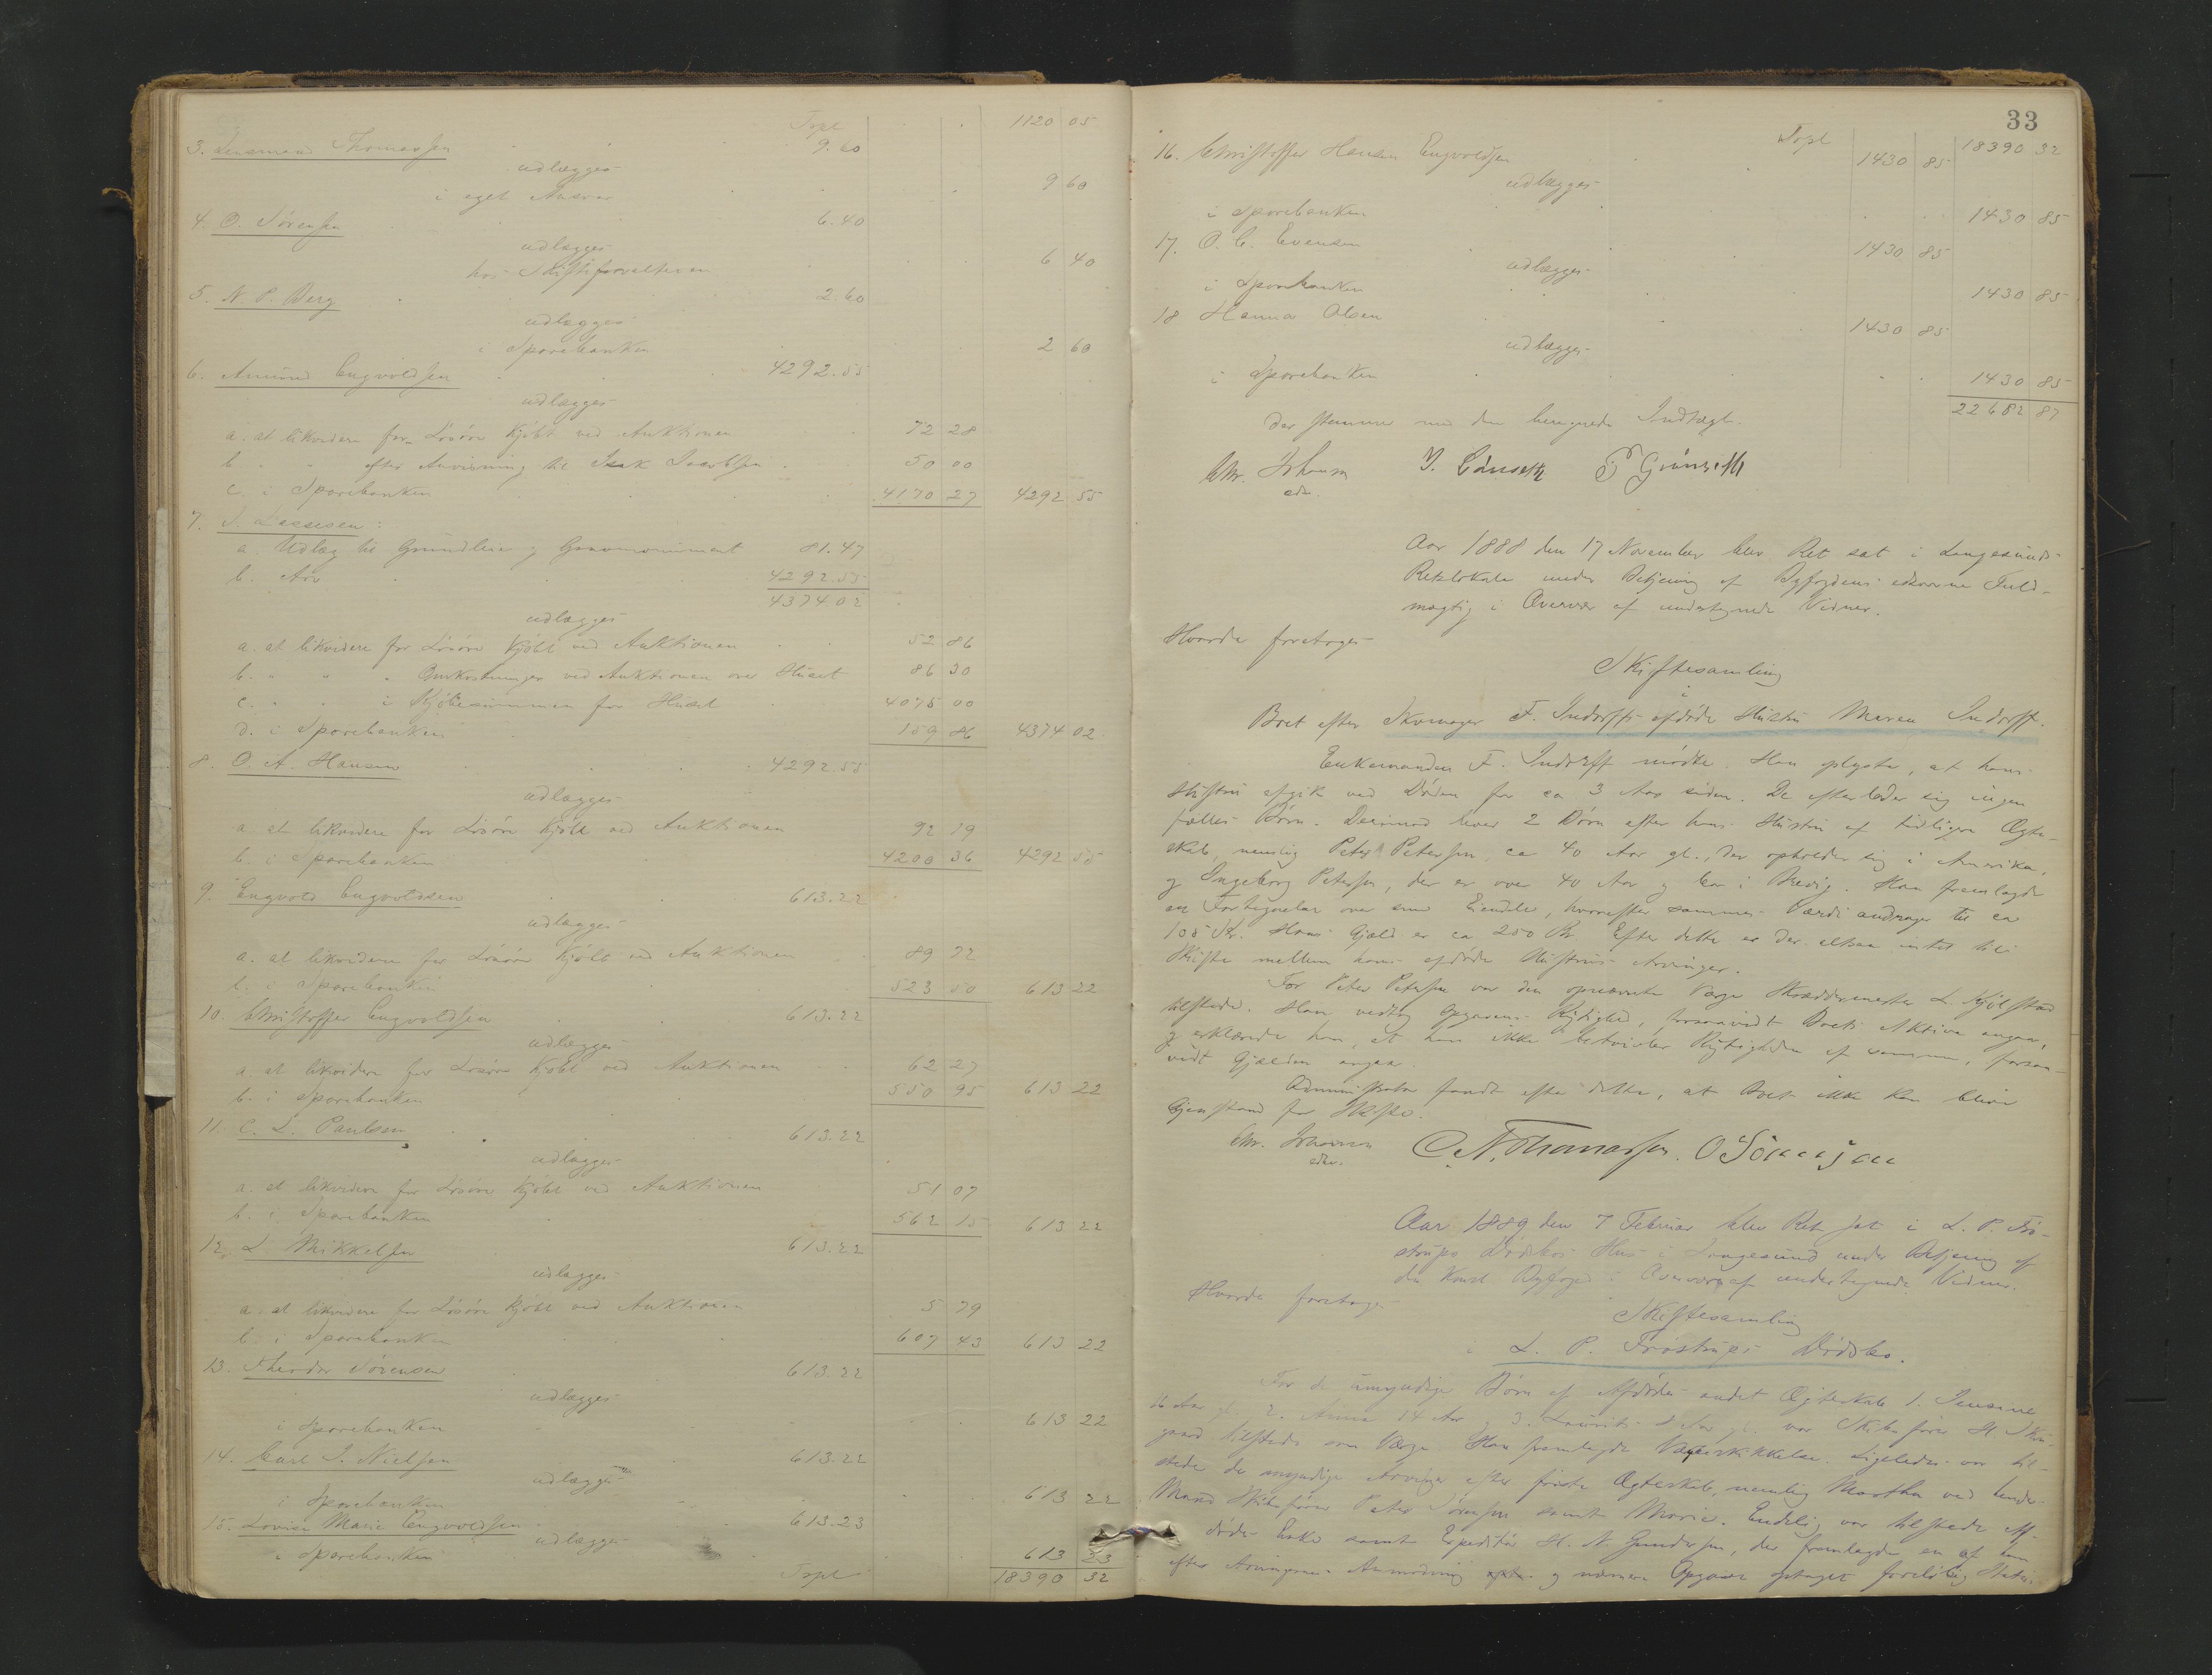 Trpt 1120 05
3. Lensmand Thomassen 9.60
udlægges
i eget Ansvar 9 60
4. O. Sörensen 6.40
udlægges
hos Skifteforvalteren 6 40
5. N. P. Berg 2.60
udlægges
i Sparebanken 2 60
6. Amund Engvoldsen 4292.55
udlægges
a. at likvidere for Lösöre kjöbt ved Auktionen 72 28
b. " " efter Anvisning til Isak Jacobsen 50 00
c. i Sparebanken 4170 27 4292 55
7. J. Lassesen:
a. Udlæg til Grundleie og Gravmonument 81.47
b. Arv 4292.55
4374.02
udlægges
a. at likvidere for Lösöre kjöbt ved Auktionen 52 86
b. " " " Omkostninger ved Auktionen over Huset 86 30
c. " " i Kjöbesummen for Huset 4075 00
d. i Sparebanken 159 86 4374 02
8. O. A. Hansen 4292.55
udlægges
a. at likvidere for Lösöre kjöbt ved Auktionen 92 19
b. i Sparebanken 4200 36 4292 55
9. Engvold Engvoldsen 613.22
udlægges
a. at likvidere for Lösöre kjöbt ved Auktionen 89 72
b. i Sparebanken 523 50 613 22
10. Christoffer Engvoldsen 613.22
udlægges
a. at likvidere for Lösöre kjöbt ved Auktionen 62 27
b. i Sparebanken 550 95 613 22
11. C. L. Paulsen 613.22
udlægges
a. at likvidere for Lösöre kjöbt ved Auktionen 51 07
b. i Sparebanken 562 15 613 22
12. L. Mikkelsen 613.22
udlægges
a. at likvidere for Lösöre kjöbt ved Auktionen 5 79
b. i Sparebanken 607 43 613 22
13. Theodor Sörensen 613.22
udlægges
i Sparebanken 613 22
14. Carl J. Nielsen 613.22
udlægges
i Sparebanken 613 22
15. Lovise Marie Engvoldsen 613.23
udlægges
i Sparebanken 613 23
Trpt 18390 32
33
Trpt 18390 32
16. Christoffer Hansen Engvoldsen 1430 85
udlægges
i Sparebanken 1430 85
17. O. C. Evensen 1430 85
udlægges
i Sparebanken 1430 85
18 Hanna Olsen 1430 85
udlægges
i Sparebanken 1430 85
22682 87
der stemmer med den beregnede Indtægt.
Chr. Johnsen
edsv.
Aar 1888 den 17 November blev Ret sat i Langesunds
Retslokale under Betjening af Byfogdens edsvorne Fuld-
mægtig i Overvær af undertegnede Vidner.
Hvorda foretoges
Skiftesamling
i
Boet efter Skomager F. Indorffs afdöde Hustru Maren Indorff.
Enkemanden F. Indorff mödte. Han oplyste, at hans
Hustru afgik ved Döden for ca 3 Aar siden. De efterlader sig ingen
fælles Börn. Derimod lever 2 Börn efter hans Hustru af tidligere Ægte-
skab, nemlig Peter Petersen, ca 40 Aar gl., der opholder sig i Amerika,
og Ingeborg Petersen, der er over 40 Aar og bor i Brevig. Han fremlagde
en Fortegnelse over sine Eiendele, hvorefter sammes Værdi andrager til ca
105 Kr. Hans Gjæld er ca 250 Kr. Efter dette er der altsaa intet til
Skifte mellem hans afdöde Hustrus Arvinger.
For Peter Petersen var den opnævnte Værge Skræddermester L. Kjölstad
tilstede. Han vedtog Opgavens Rigtighed, forsaavidt Boets Aktiva angaar,
og erklærede han, at han ikke betvivler Rigtigheden af samme, forsaa-
vidt Gjælden angaar.
Administrator fandt efter dette, at Boet ikke kan blive
Gjenstand for Skifte.
Chr. Johnsen C. N. Thomassen. O Sörensen
edsv.
Aar 1889 den 7 Februar blev Ret sat i L. P. Frö-
strups Dödsbos Hus i Langesund under Betjening af
den konst. Byfoged i Overvær af undertegnede Vidner.
Hvorda foretoges
Skiftesamling
i L. P. Fröstrups Dödsbo.
For de umyndige Börn af Afdödes andet Ægteskab 1. Jensine
16 Aar gl. 2. Anna 14 Aar og 3. Laurits Aar gl. var Skibsförer H.
gaard tilstede som Værge. Han fremlagde Værgebeskikkelse. Ligeledes var til-
stede de myndige Arvinger efter förste Ægteskab, nemlig Martha ved hendes
Mand Skibsförer Peter Sörensen samt Marie. Endelig var tilstede Af-
dödes Enke samt Expeditör H. N. Gundersen, der fremlagde en af ham
efter Arvingernes Anmodning og nærmere Opgave optaget foreløbig Status.